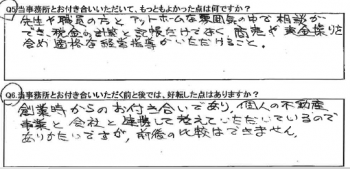 Q5.当事務所とお付き合いいただいて、もっともよかった点は何ですか?
先生や職員の方とアットホームな雰囲気の中で相談が
でき、税金の計算と記帳だけでなく、商売や資金繰りを
含め適格な経営指導がいただけること。
Q6.当事務所とお付き合いいただく前と後では、好転した点はありますか?
創業時からのお付き合いであり、個人の不動産
事業と会社と連携して考えていただいているので
ありがたいですが、前後の比較はできません。